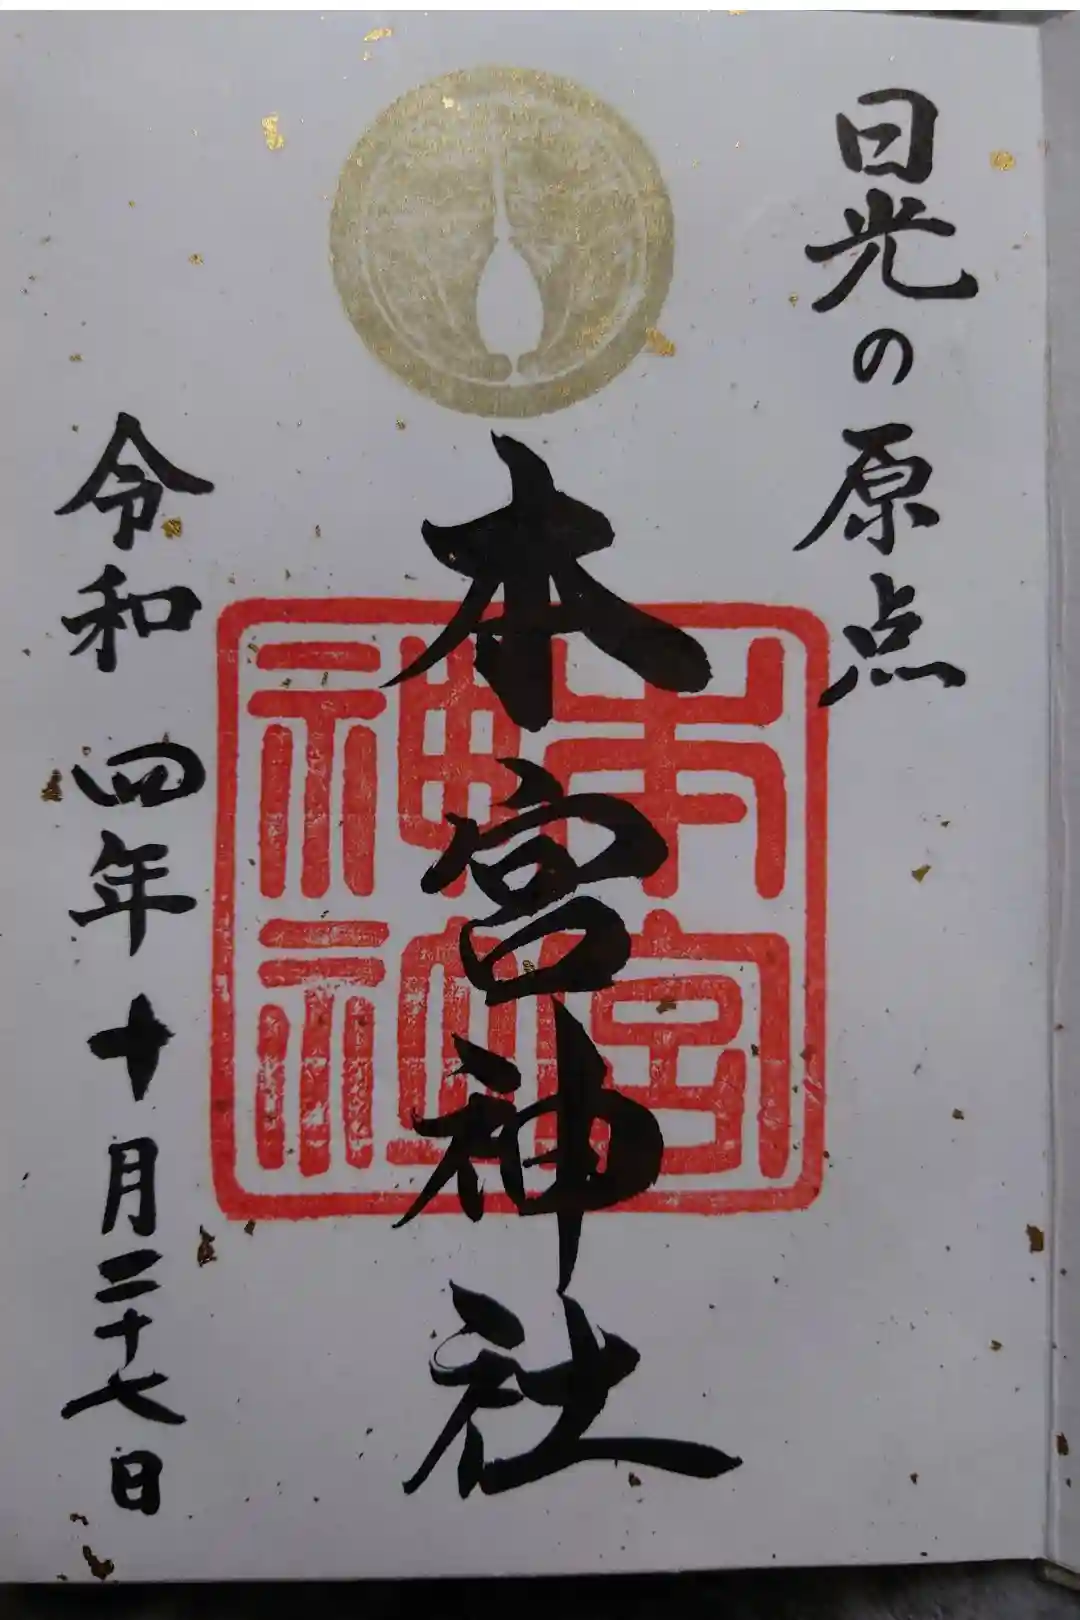 日光の原点
本宮神社
令和四年十月二十七日